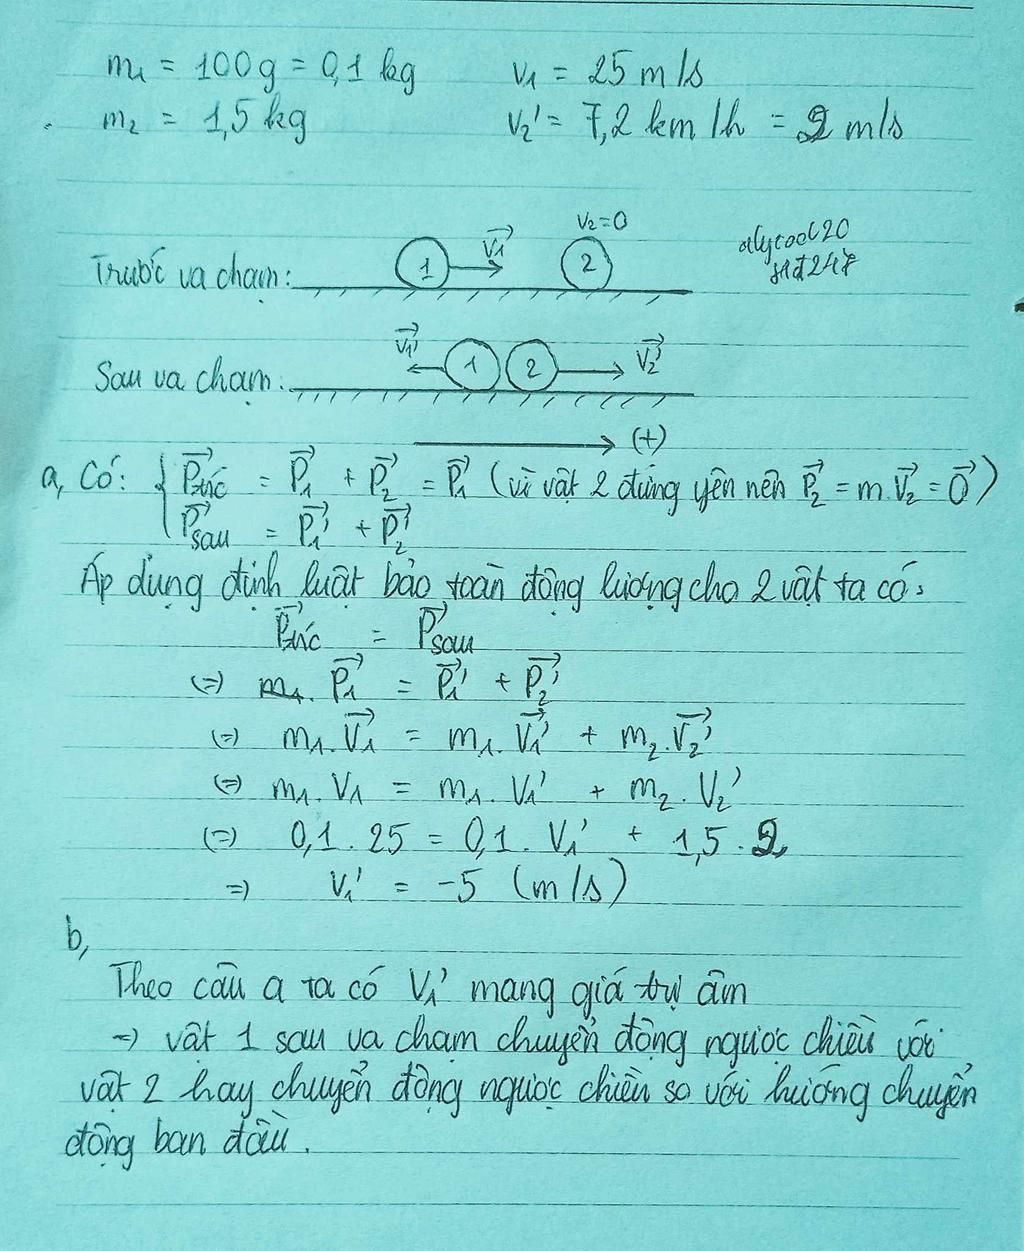 m₁ = 100g = 0,1 kg v₁ = 25 m/s
m₂ = 1,5 kg v₂' = 7,2 km/h = 2 m/s
v₂=0
Trước va chạm: 1 v₁⃗ 2
Sau va chạm: v₁'⃗ 1 2 v₂'⃗
(+)
a, Có: { P⃗trc = P₁⃗ + P₂⃗ = P₁⃗ (vì vật 2 đứng yên nên P₂⃗ = m.v₂⃗ = 0⃗)
P⃗sau = P₁'⃗ + P₂'⃗
Áp dụng định luật bảo toàn động lượng cho 2 vật ta có:
P⃗trc = P⃗sau
(=) P₁⃗ = P₁'⃗ + P₂'⃗
(=) m₁.v₁⃗ = m₁.v₁'⃗ + m₂.v₂'⃗
(=) m₁.v₁ = m₁.v₁' + m₂.v₂'
(=) 0,1.25 = 0,1.v₁' + 1,5.2
=) v₁' = -5 (m/s)
b,
Theo câu a ta có v₁' mang giá trị âm
=) vật 1 sau va chạm chuyển động ngược chiều với
vật 2 hay chuyển động ngược chiều so với hướng chuyển
động ban đầu.